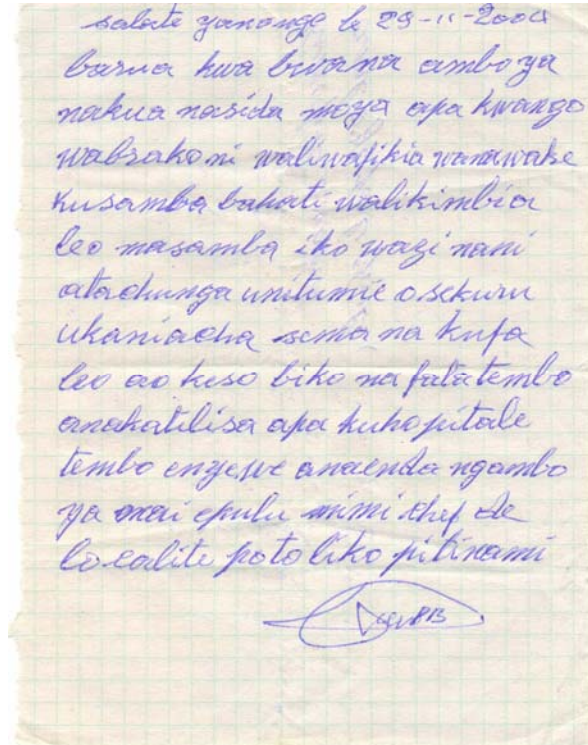 salate yanonge le 29-11-2004
barua kwa bwana amboya
nakua nasida moya apa kwango
wabrakoni waliwafikia wanawake
kusamba bahati walikimbia
leo masamba iko wazi nani
atachunga unitumie osekuru
ukaniacha sema na kufa
leo ao keso biko na fata tembo
anakatilisa apa kuhopitale
tembo enyewe anaenda ngambo
ya mai epulu mimi chef de
localite poto liko pitinami